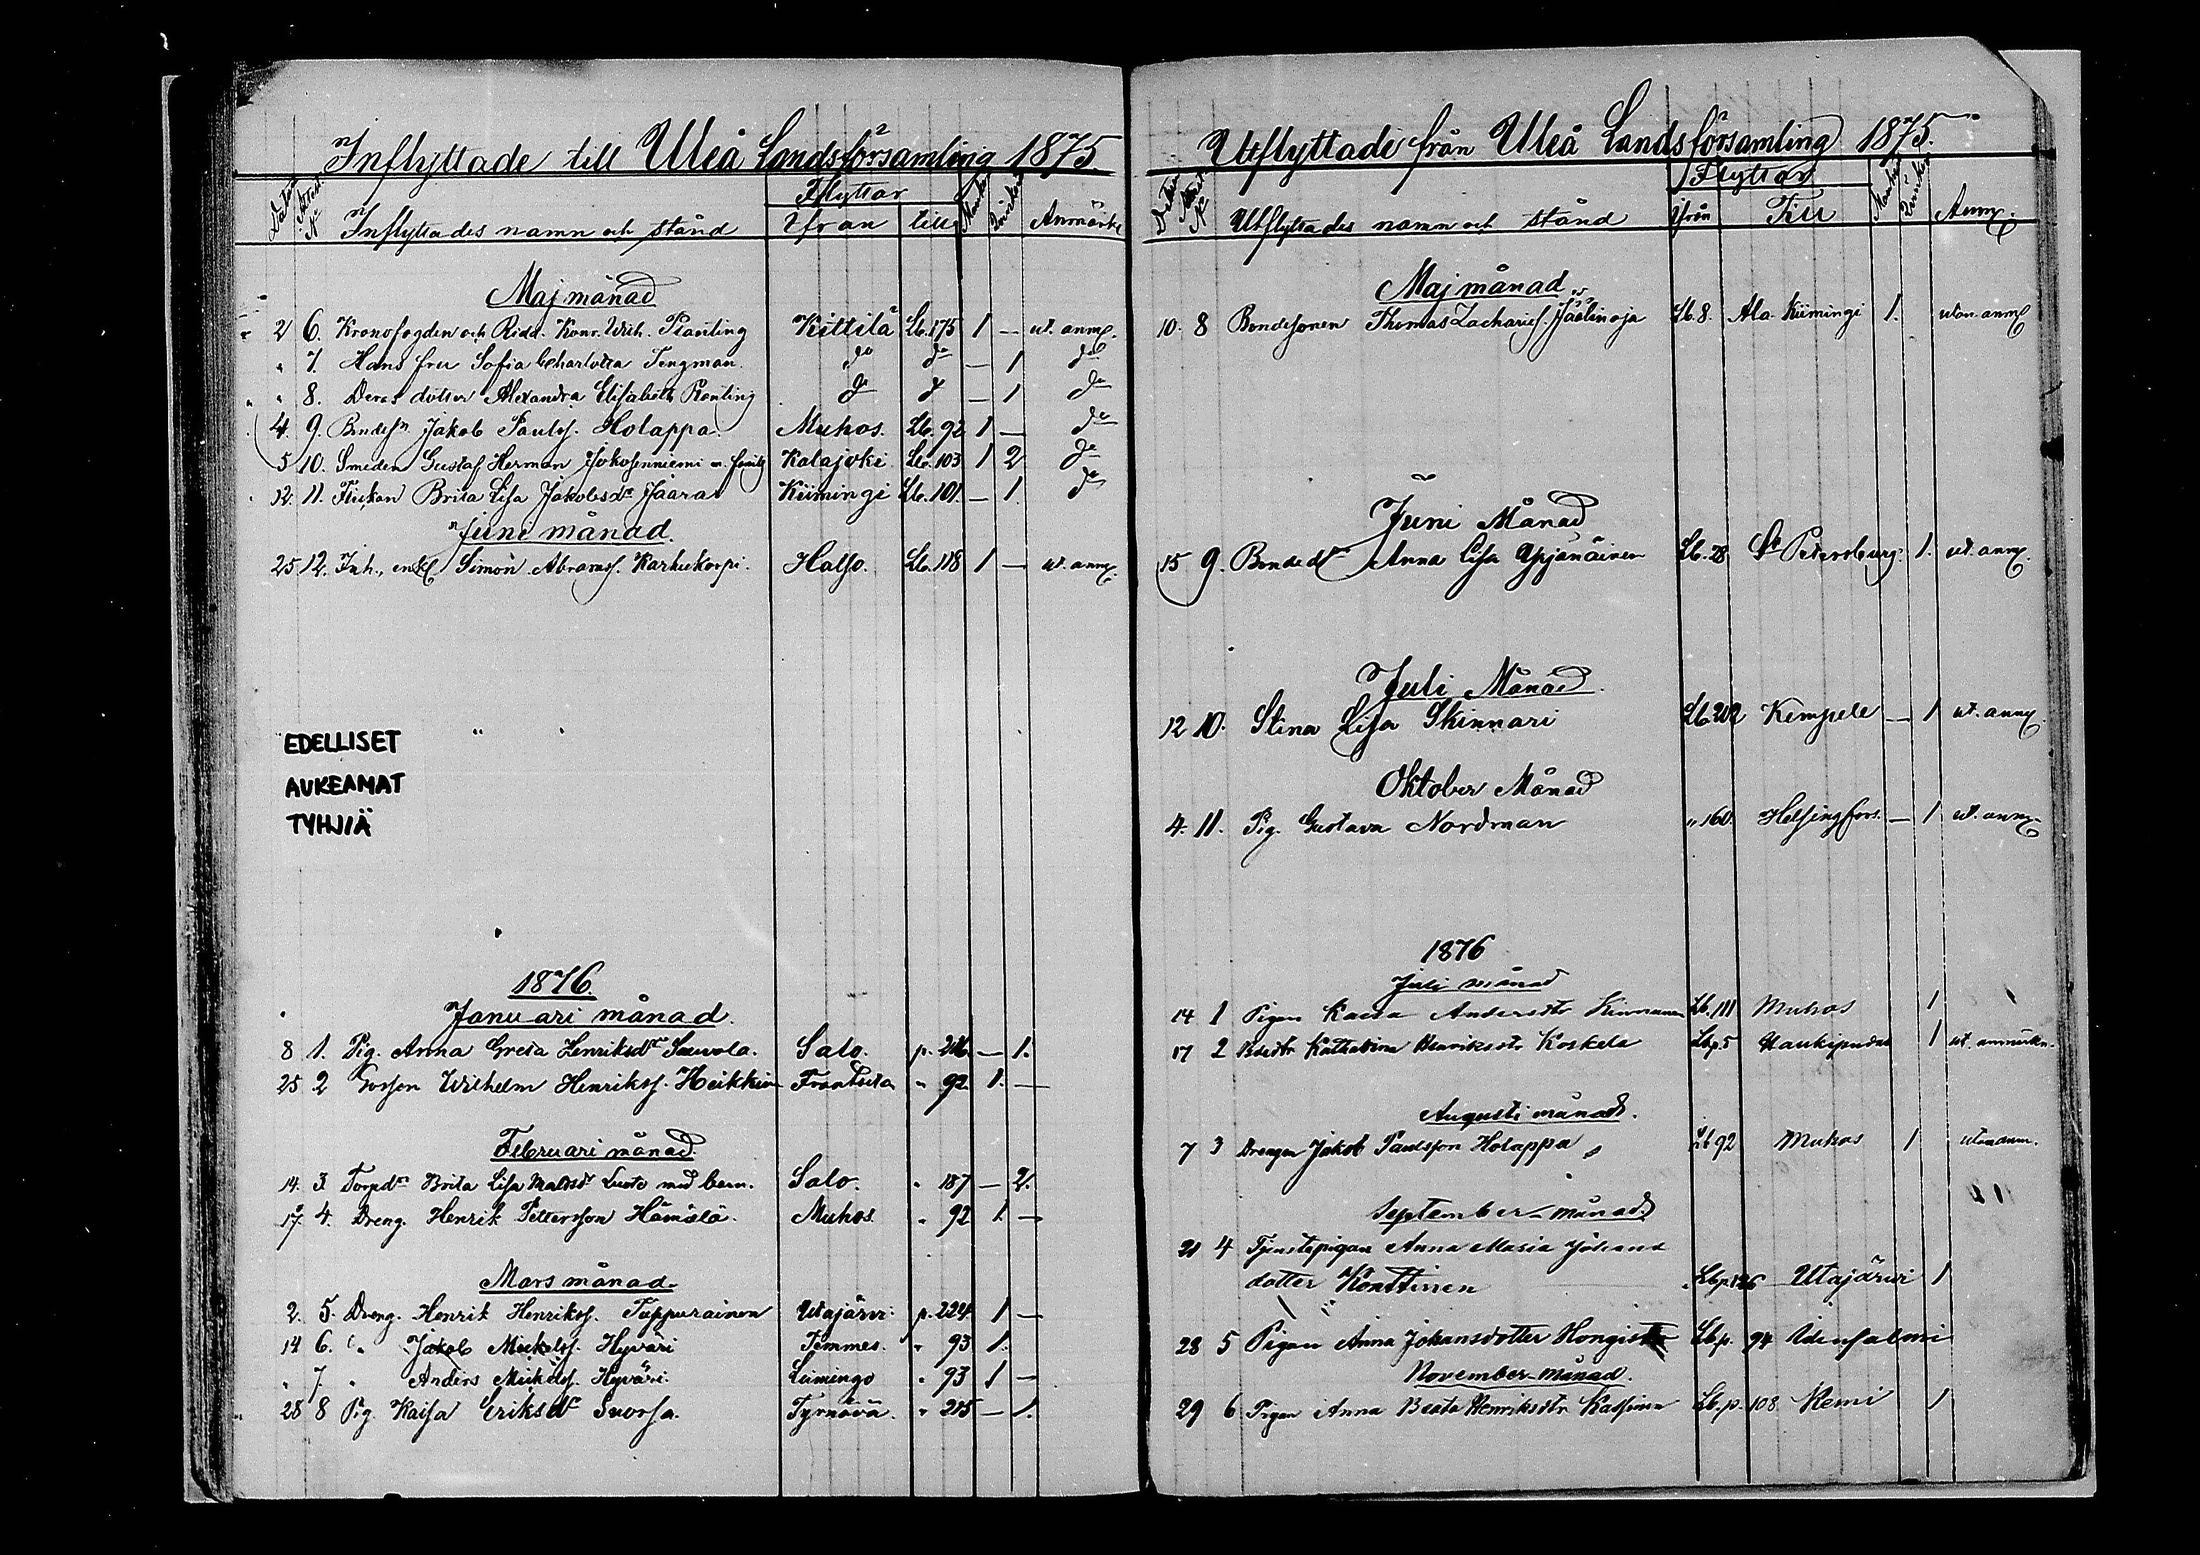 Inflyttade till Uleå Landsförsamling 1875.
Datum Attest. № Inflyttades namn och stånd Flyttar Ifrån till Mankön Qvinkön Anmärkn
Maj månad
2 6. Kronofogden och Ridd. Konr. Wilh. Planting Kittilä Lb. 175 1 — ut. anm.
" 7. Hans fru Sofia Charlotta Tengman. do do — 1 do
" 8. Deras dotter Alexandra Elisabeth Planting do d — 1 do
4. 9. Bondesn Jakob Paulss. Holappa. Muhos. Lb. 92 1 — do
5 10. Smeden Gustaf Herman Jokosenniemi m. familj Kalajoki Lb. 103 1 2 do
12. 11. Flickan Brita Lisa Jakobsdr Jaara Kiimingi Lb. 101. — 1. do
Juni månad.
25 12. Inh., enkl. Simon Abramss. Karhukorpi. Halso. Lb. 118 1 — ut. anm.
EDELLISET
AUKEAMAT
TYHJIÄ
1876.
Januari månad.
8 1. Pig. Anna Greta Henriksdr Sauvola. Salo. p. 216. — 1.
25 2 Gossen Wilhelm Henrikss. Heikkinen Frantsila " 92. 1. —
Februari månad.
14. 3 Torpdr Brita Lisa Mattsdr Luoto med barn. Salo. " 187 — 2.
17. 4. Dreng. Henrik Pettersson Hämälä. Muhos. " 92 1. —
Mars månad.
2. 5. Dreng. Henrik Henrikss. Tuppurainen Utajärvi. p. 224. 1 —
14 6. " Jakob Mickelss. Hyväri Temmes. " 93 1.
" 7. " Anders Mickelss. Hyväri. Limingo " 93 1 —
28 8 Pig. Kaisa Eriksdr Suorsa. Tyrnävä. " 215 — 1.
Utflyttade från Uleå Landsförsamling 1875.
Datum Attest. № Utflyttades namn och stånd Flyttar Ifrån Till Mankön Qvinkön Anm.
Maj månad.
10. 8 Bondesonen Thomas Zachariess. Jäälinoja Lb. 8. Ala Kiimingi 1. utan anm
Juni Månad
15 9. Bondedr Anna Lisa Ypjänäinen Lb. 28 St Petersburg. 1. ut. anm.
Juli Månad.
12 10. Stina Lisa Skinnari Lb. 212 Kempele — 1 ut. anm.
Oktober Månad
4. 11. Pig. Gustava Nordman " 160. Helsingfors. — 1 ut. anm.
1876
Juli månad
14 1 Pigan Kaisa Andersdtr Kinnunen Lb. 111 Muhos 1
17 2 Bdedtr Katharina Henriksdtr Koskela Lb p. 5 Haukipudas 1 ut. anmärkn.
Augusti månad.
7 3 Drengen Jakob Paulsson Holappa Lb 92 Muhos 1 utan anm.
September månad
21 4 Tjenstepigan Anna Maria Johans
dotter Konttinen Lb p. 126 Utajärwi 1
28 5 Pigan Anna Johansdotter Hongisto Lb p. 94 Idensalmi
November månad.
29 6 Pigan Anna Beata Henriksdtr Kassinen Lb. p. 108 Kemi 1